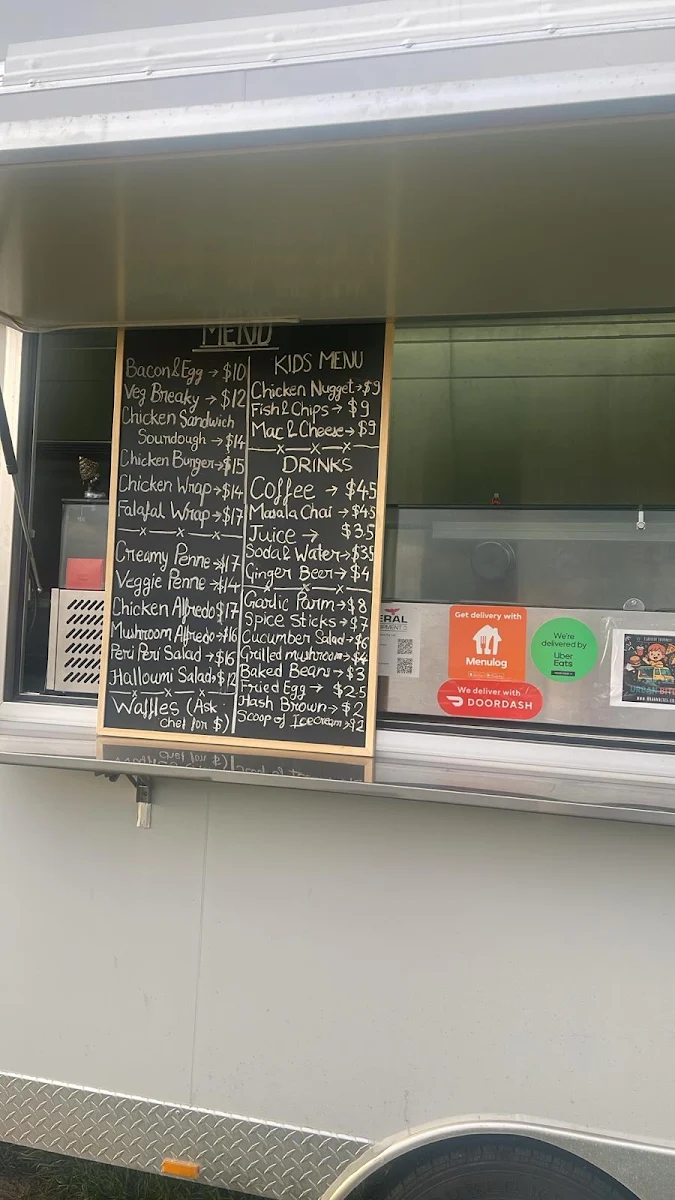 MENU
Bacon & Egg → $10
Veg Breaky → $12
Chicken Sandwich
Sourdough → $14
Chicken Burger → $15
Chicken Wrap → $14
Falafal Wrap → $17
x x x
Creamy Penne → $17
Veggie Penne → $14
Chicken Alfredo $17
Mushroom Alfredo → $16
Peri Peri Salad → $16
Halloumi Salad → $12
x x x
Waffles (Ask
chef for $)
KIDS MENU
Chicken Nugget → $9
Fish & Chips → $9
Mac & Cheese → $9
x x x
DRINKS
Coffee → $4.5
Masala Chai → $4.5
Juice → $3.5
Soda & Water → $3.5
Ginger Beer → $4
x x x
Garlic Parm → $8
Spice Sticks → $7
Cucumber Salad → $6
Grilled mushroom → $4
Baked Beans → $3
Fried Egg → $2.5
Hash Brown → $2
Scoop of Icecream → $2
ERAL
Get delivery with
Menulog
We're
delivered by
Uber
Eats
We deliver with
DOORDASH
URBAN BITE